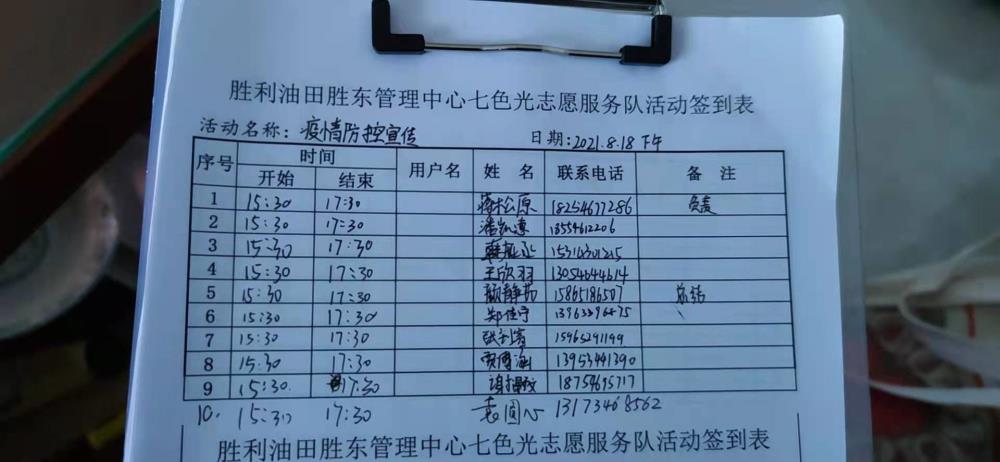 胜利油田胜东管理中心七色光志愿服务队活动签到表
活动名称：疫情防控宣传 日期：2021.8.18 下午
序号 时间 用户名 姓 名 联系电话 备 注
开始 结束
1 15:30 17:30 松原 18254677286 负责
2 15:30 17:30 13554612206
3 15:30 17:30
4 15:30 17:30 王欣羽 13054644614
5 15:30 17:30 静茹 15865186507 总结
6 15:30 17:30 郑佳宁
7 15:30 17:30 15965291199
8 15:30 17:30 贾博涵 13953441390
9 15:30 17:30 18759695717
10. 15:30 17:30 袁圆心 13173468562
胜利油田胜东管理中心七色光志愿服务队活动签到表